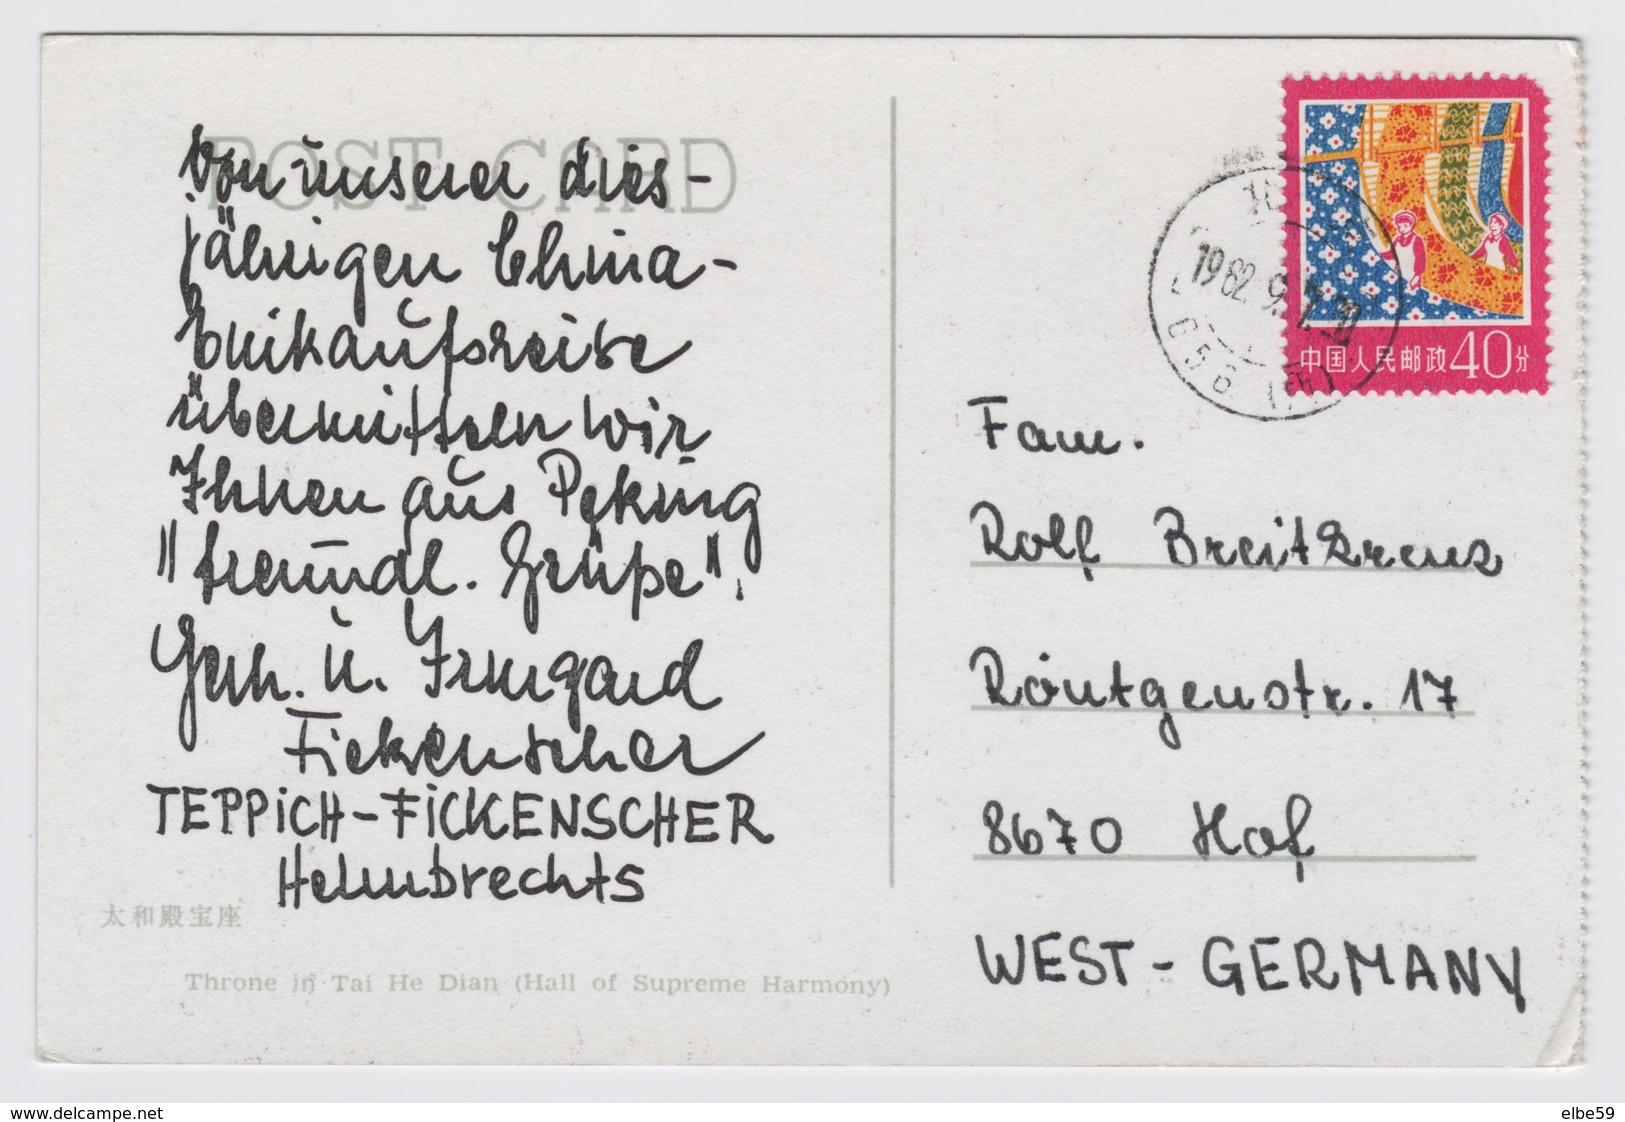 POST CARD
Von unserer dies-
jährigen China-
Einkaufsreise
übermitteln wir
Ihnen aus Peking
"freundl. Grüße".
Gerh. u. Irmgard
Fickenscher
TEPPiCH-FiCKENSCHER
Helmbrechts
太和殿宝座
Throne in Tai He Dian (Hall of Supreme Harmony)
中国人民邮政40分
1982.9.
Fam.
Rolf Breitkreuz
Röntgenstr. 17
8670 Hof
WEST-GERMANY
www.delcampe.net
elbe59